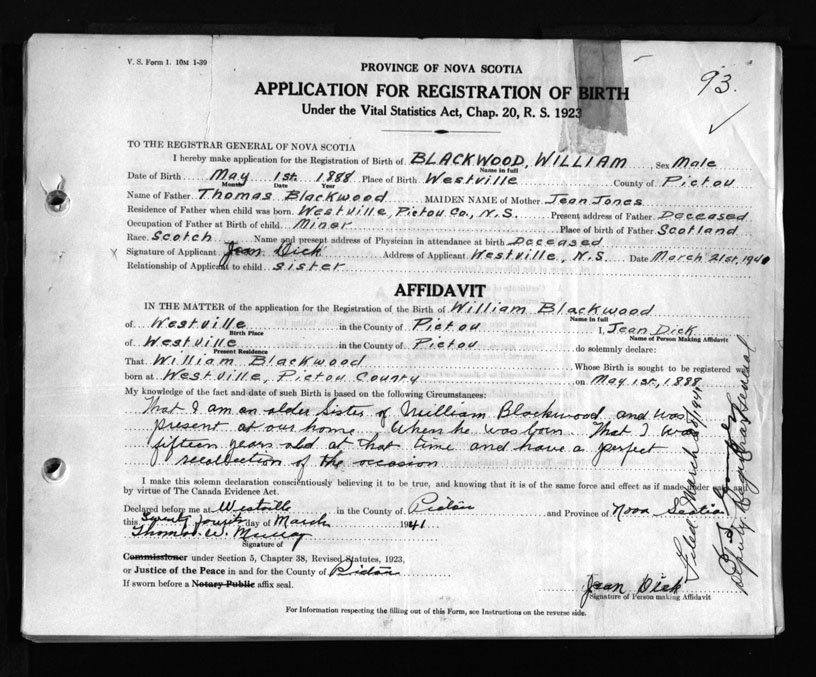 V. S. Form 1. 10M 1-39
PROVINCE OF NOVA SCOTIA
93.
APPLICATION FOR REGISTRATION OF BIRTH
Under the Vital Statistics Act, Chap. 20, R. S. 1923
TO THE REGISTRAR GENERAL OF NOVA SCOTIA
I hereby make application for the Registration of Birth of BLACKWOOD, WILLIAM Sex Male
Name in full
Date of Birth May 1st. 1888 Place of Birth Westville County of Pictou
Month Date Year
Name of Father Thomas Blackwood MAIDEN NAME of Mother Jean Jones
Residence of Father when child was born Westville, Pictou Co., N.S. Present address of Father Deceased
Occupation of Father at Birth of child Miner Place of birth of Father Scotland
Race Scotch Name and present address of Physician in attendance at birth Deceased
X Signature of Applicant Jean Dick Address of Applicant Westville, N.S. Date March 21st, 194
Relationship of Applicant to child sister
AFFIDAVIT
IN THE MATTER of the application for the Registration of the Birth of William Blackwood
Name in full
of Westville in the County of Pictou I, Jean Dick
Birth Place Name of Person Making Affidavit
of Westville in the County of Pictou do solemnly declare:
Present Residence
That William Blackwood Whose Birth is sought to be registered was
born at Westville, Pictou County on May 1st, 1888
My knowledge of the fact and date of such Birth is based on the following Circumstances:
That I am an older sister of William Blackwood and was
present at our home when he was born That I was
fifteen years old at that time and have a perfect
recollection of the occasion
I make this solemn declaration conscientiously believing it to be true, and knowing that it is of the same force and effect as if made under oath and
by virtue of The Canada Evidence Act.
Declared before me at Westville in the County of Pictou and Province of Nova Scotia
this Twenty fourth day of March 1941
Thomas W. Murray
Signature of
Commissioner under Section 5, Chapter 38, Revised Statutes, 1923,
or Justice of the Peace in and for the County of Pictou
If sworn before a Notary Public affix seal.
Jean Dick
Signature of Person making Affidavit
For Information respecting the filling out of this Form, see Instructions on the reverse side.
Filed March 28/1941
Deputy Registrar General